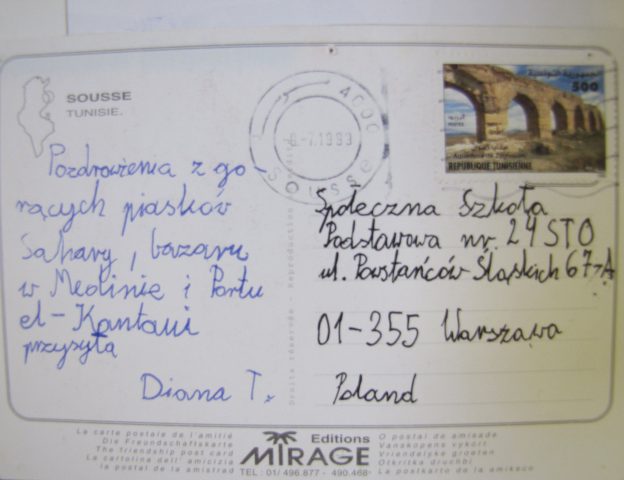 SOUSSE
TUNISIE.
4000
8-7.1993
Sousse
500
REPUBLIQUE TUNISIENNE
Pozdrowienia z go-
rących piasków
Sahary, bazaru
w Medinie i Portu
el-Kantaui
przysyła
Diana T.
Społeczna Szkoła
Podstawowa nr. 24 STO
ul. Powstańców Śląskich 67A
01-355 Warszawa
Poland
Droits réservés - Reproduction
La carte postale de l'amitié
Die Freundschaftskarte
The friendship post card
La cartolina dell' amicizia
la postal de la amistad
Editions
MIRAGE
TEL : 01/ 496.877 - 490.468
O postal de amisade
Vanskapens vykort
Vriendelyke groeten
Otkritka droozhbi
La postkarto de la amikeco